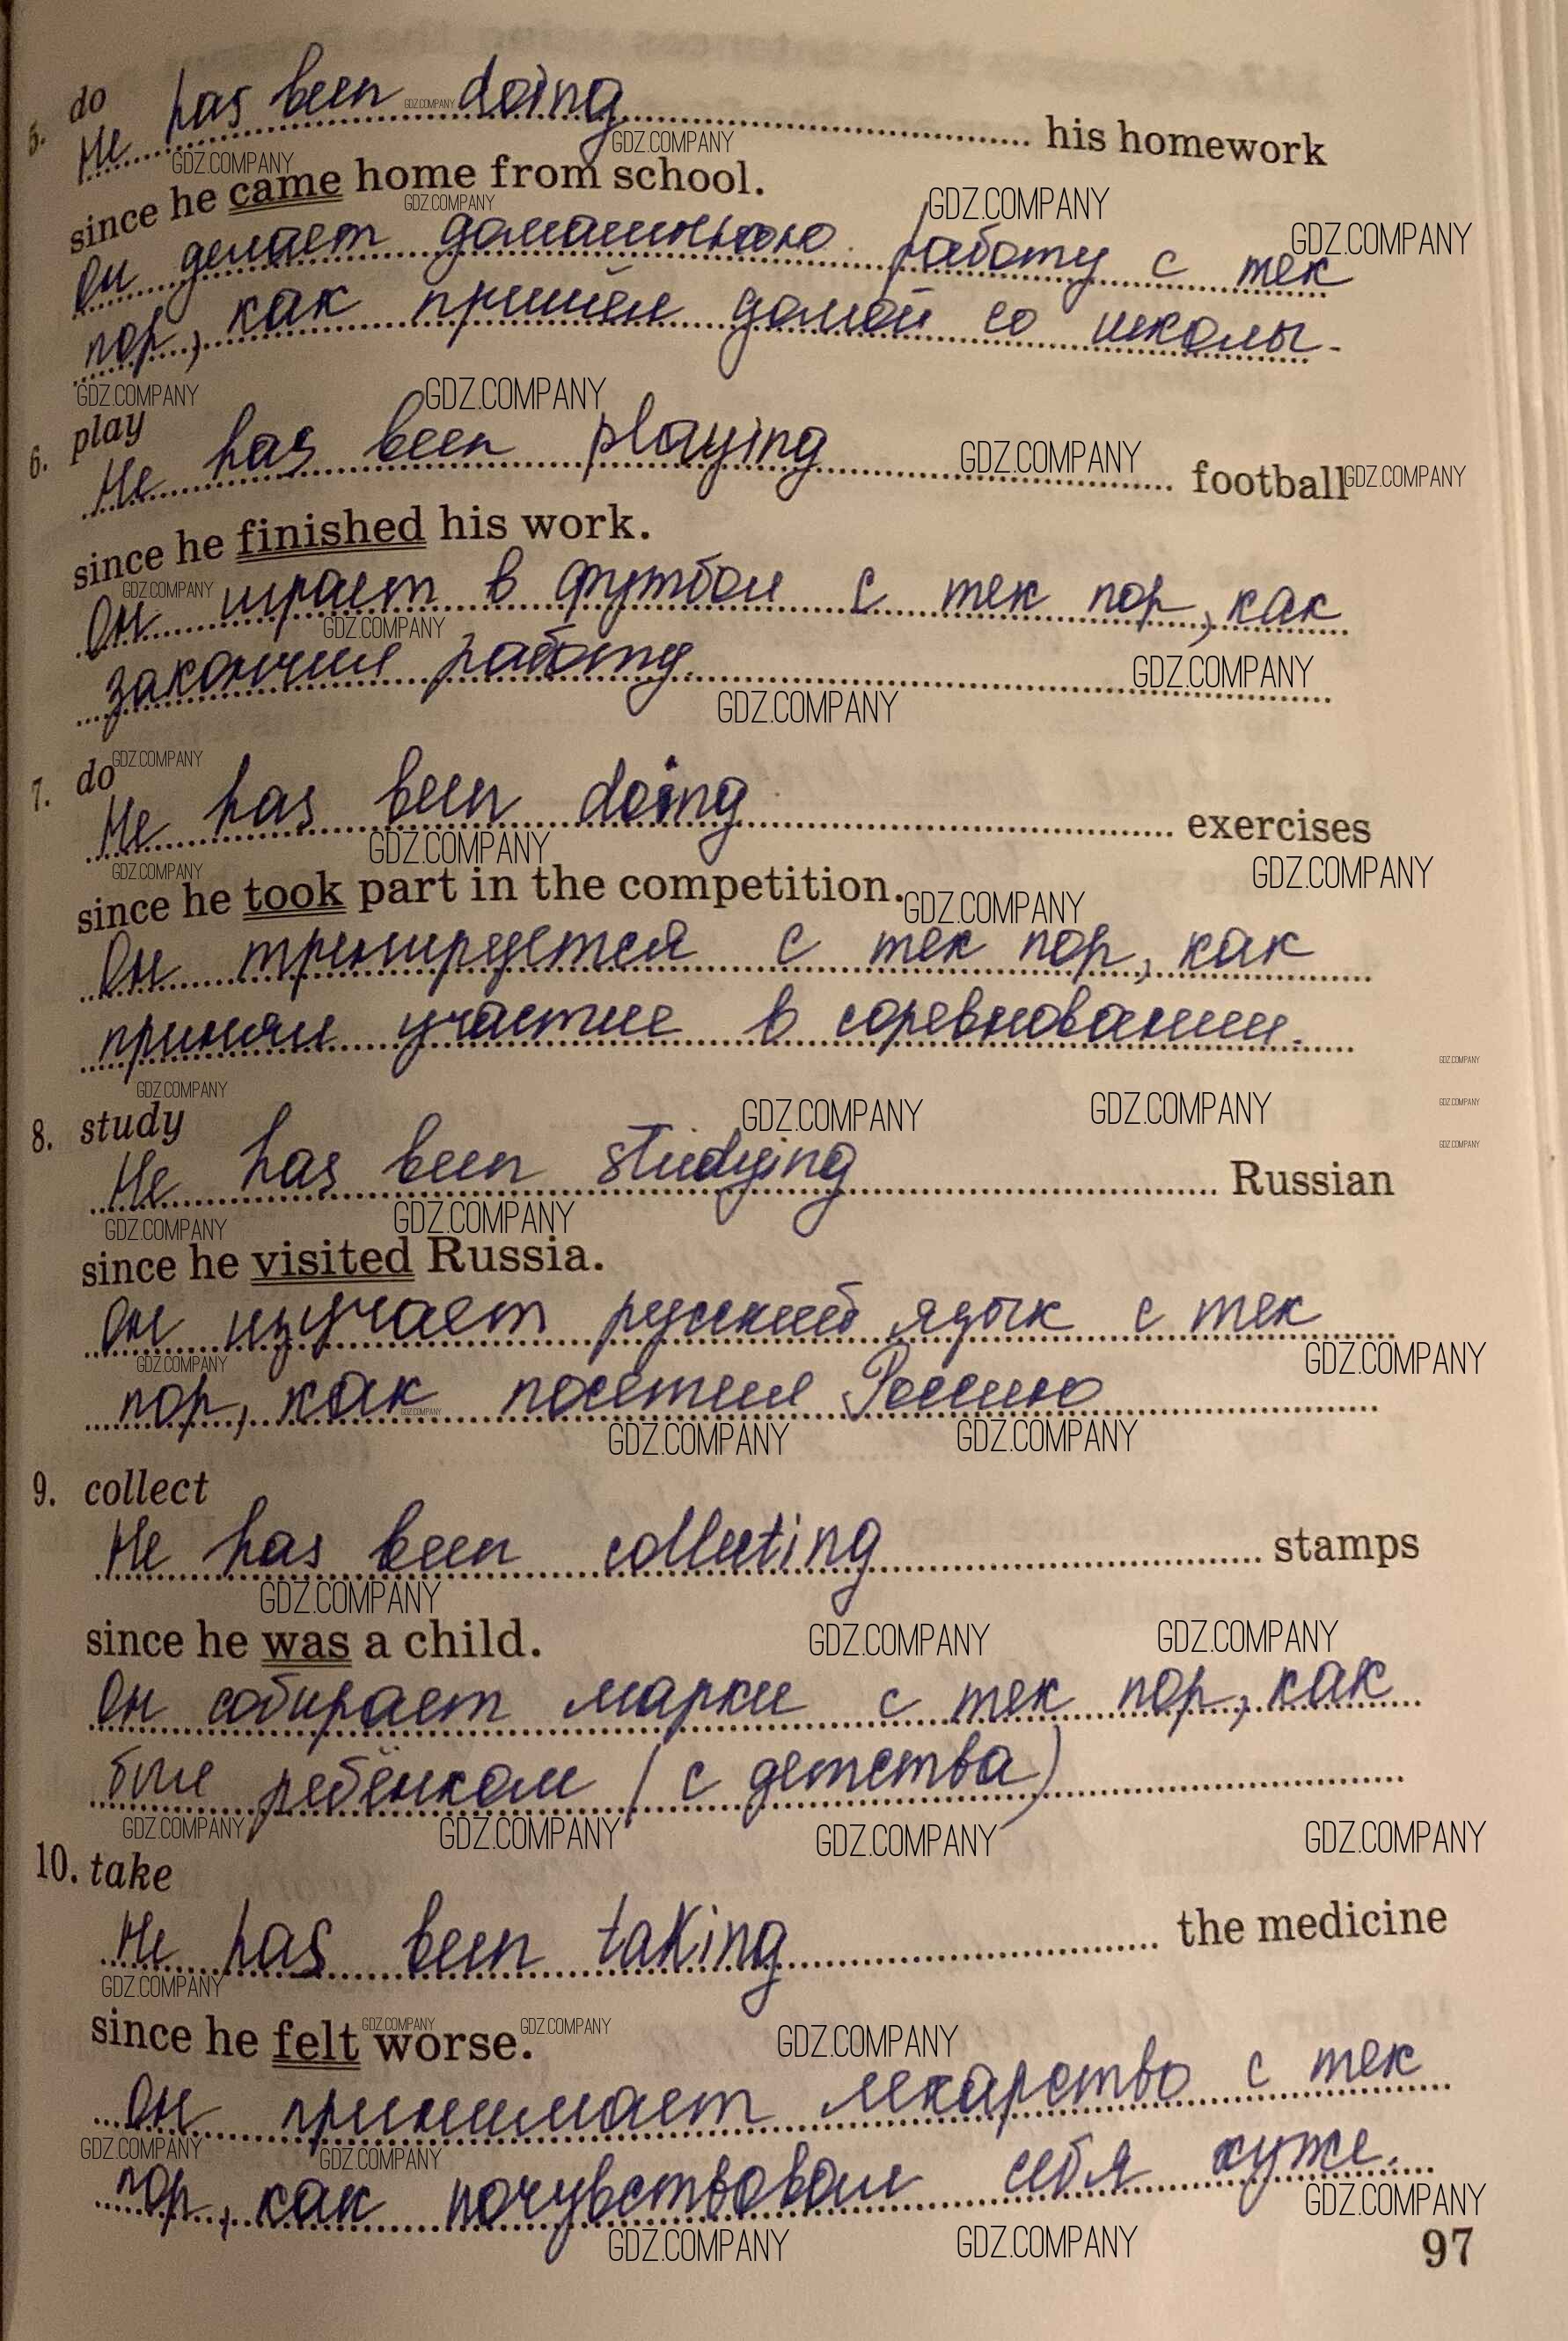 5. do
He has been doing his homework
since he came home from school.
Он делает домашнюю работу с тех
пор, как пришёл домой со школы.
6. play
He has been playing football
since he finished his work.
Он играет в футбол с тех пор, как
закончил работу.
7. do
He has been doing exercises
since he took part in the competition.
Он тренируется с тех пор, как
принял участие в соревновании.
8. study
He has been studying Russian
since he visited Russia.
Он изучает русский язык с тех
пор, как посетил Россию
9. collect
He has been collecting stamps
since he was a child.
Он собирает марки с тех пор, как
был ребёнком (с детства)
10. take
He has been taking the medicine
since he felt worse.
Он принимает лекарство с тех
пор, как почувствовал себя хуже.
97
GDZ.COMPANY